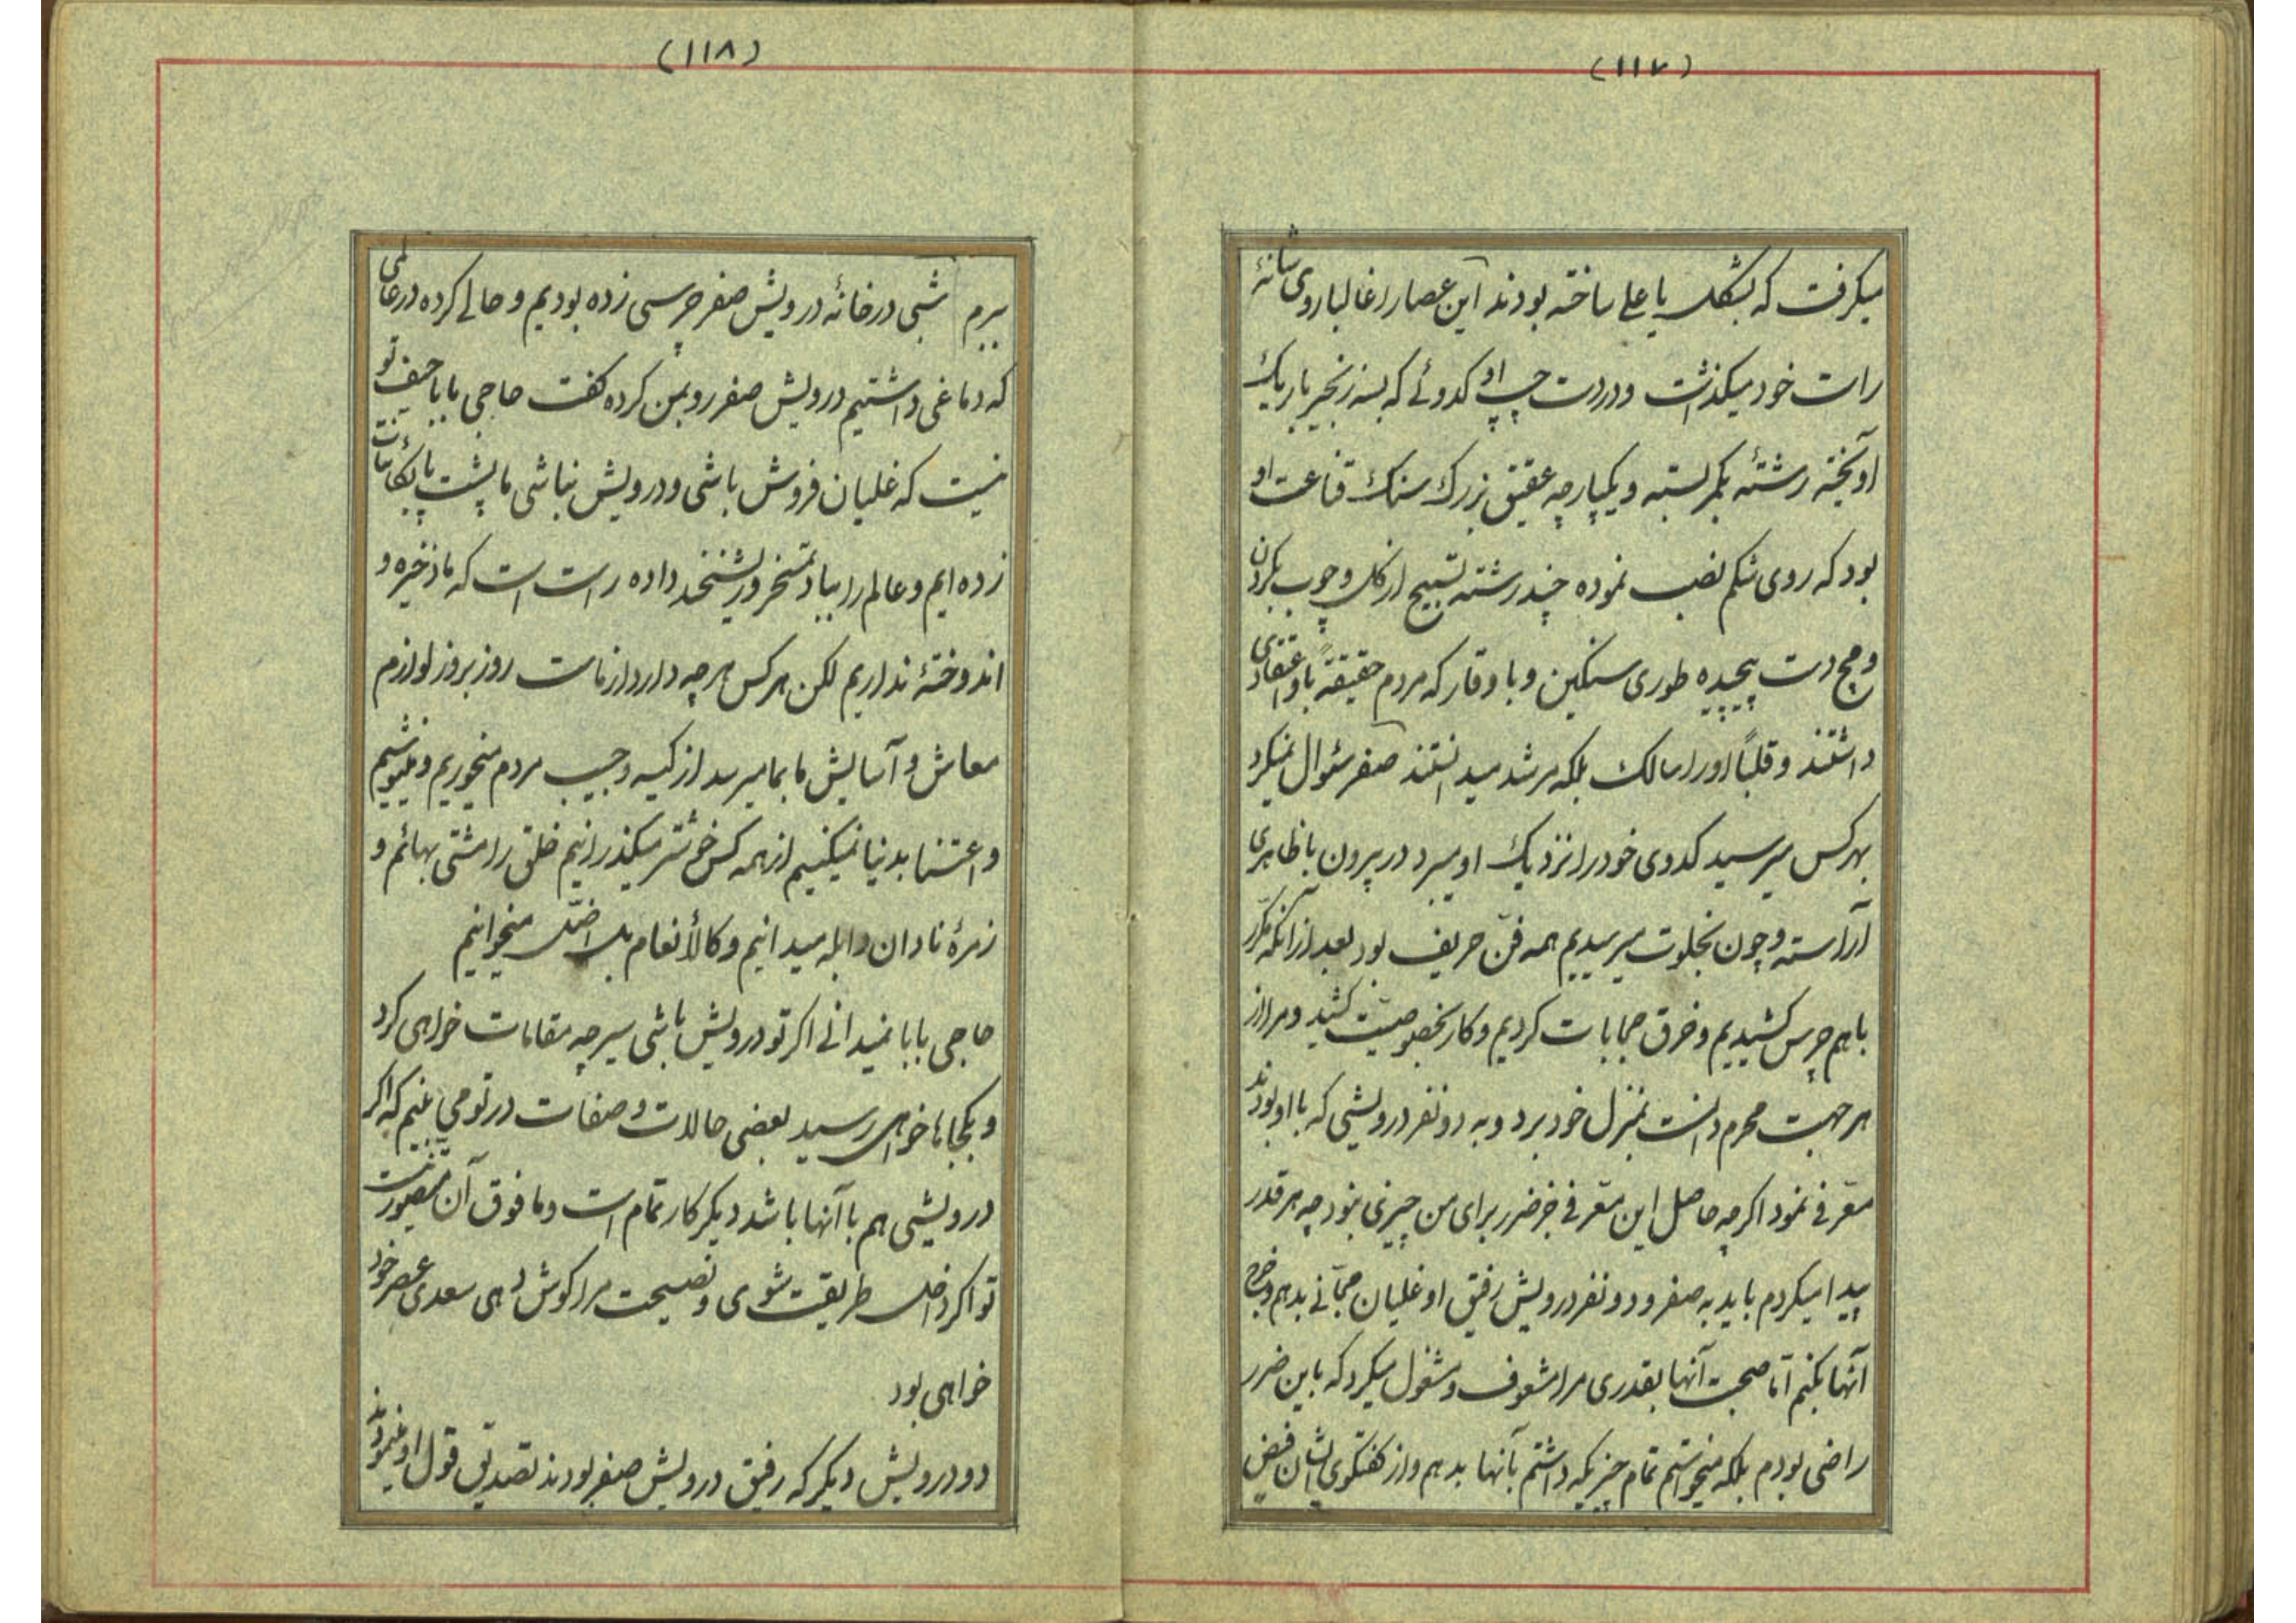 (۱۱۷)
میکرفت که بشکل یا علی ساخته بودند این عصا را غالبا روی شانهٔ
راست خود میکذاشت و در دست چپ او کدوئی که بسه زنجیر باریک
آویخته رشتهٔ بکمر بسته و یکپارچه عقیق بزرک سنک قناعت او
بود که روی شکم نصب نموده چند رشته تسبیح از کل و چوب بکردن
و مچ دست پیچیده طوری سنکین و با وقار که مردم حقیقةً باو اعتقادی
داشتند و قلباً او را سالک بلکه مرشد میدانستند صفر سئوال نمیکرد
بهر کس میرسید کدوی خود را نزدیک او میبرد در بیرون با ظاهری
آراسته و چون بخلوت میرسیدیم همه فنّ حریف بود بعد از آنکه مکرّر
با هم چرس کشیدیم و خرق حجابات کردیم و کار بخصوصیّت کشید و مرا از
هر جهت محرم دانست بمنزل خود برد و به دو نفر درویشی که با او بودند
معرّفی نمود اکرچه حاصل این معرّفی جز ضرر برای من چیزی نبود چه هر قدر
پیدا میکردم باید به صفر و دو نفر درویش رفیق او غلیان مجّانی بدهم و خرج
آنها بکنم امّا صحبت آنها بقدری مرا مشعوف و مشغول میکرد که باین ضرر
راضی بودم بلکه میخواستم تمام چیزیکه داشتم بآنها بدهم و از کفتکوی ایشان فیض
(۱۱۸)
ببرم شبی در خانهٔ درویش صفر چرسی زده بودیم و حالی کرده در عالمی
که دماغی داشتیم درویش صفر رو بمن کرده کفت حاجی بابا حیف تو
نیست که غلیان فروش باشی و درویش نباشی ما پشت پا بکائنات
زده ایم و عالم را بباد تمسخر و ریشخند داده راست است که ما ذخیره و
اندوختهٔ نداریم لکن هر کس هر چه دارد از ماست روز بروز لوازم
معاش و آسایش ما بما میرسد از کیسه و جیب مردم میخوریم و مینوشیم
و اعتنا بدنیا نمیکنیم از همه کس خوشتر میکذرانیم خلق را مشتی بهائم و
زمرهٔ نادان و ابله میدانیم و کالأنعام بل اضلّ میخوانیم
حاجی بابا نمیدانی اکر تو درویش باشی سیر چه مقامات خواهی کرد
و بکجاها خواهی رسید بعضی حالات و صفات در تو می بینم که اکر
درویشی هم با آنها باشد دیکر کار تمام است و ما فوق آن متصوّر نیست
تو اکر داخل طریقت شوی و نصیحت مرا کوش دهی سعدی عصر خود
خواهی بود
دو درویش دیکر که رفیق درویش صفر بودند تصدیق قول او نمودند